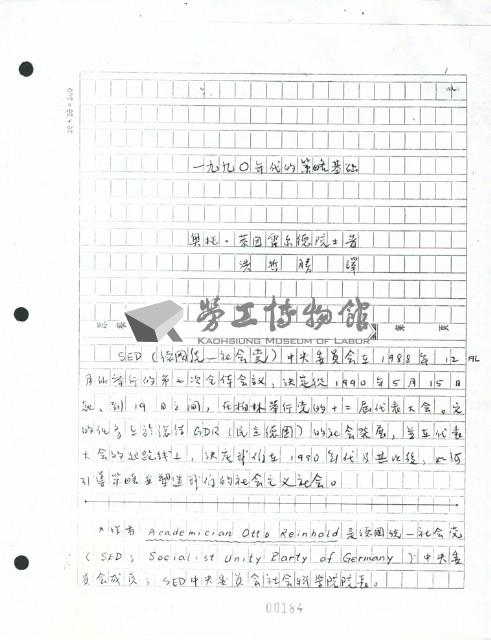 20×25=500
1
一九九0年代的策略基础
奥托·莱因霍尔德院士著
洪哲勝 譯
勞工博物館
KAOHSIUNG MUSEUM OF LABOR
第 頁
SED (德國統一社会党) 中央委員会在1988年12
月所举行的第七次全体会議,决定從1990年5月15日
起、到19日之間,在柏林举行党的十二届代表大会。它
的任务在於總结GDR(民主德国)的社会発展,並在代表
大会的起跑线上,决定我们在1990年代及其以後,如何
引導策略去塑造我们的社会主义社会。
*作者 Academician Otto Reinhold 是德國統一社会党
(SED; Socialist Unity Party of Germany) 中央委
員会成员; SED中央委員会社会科学院院長。
00184